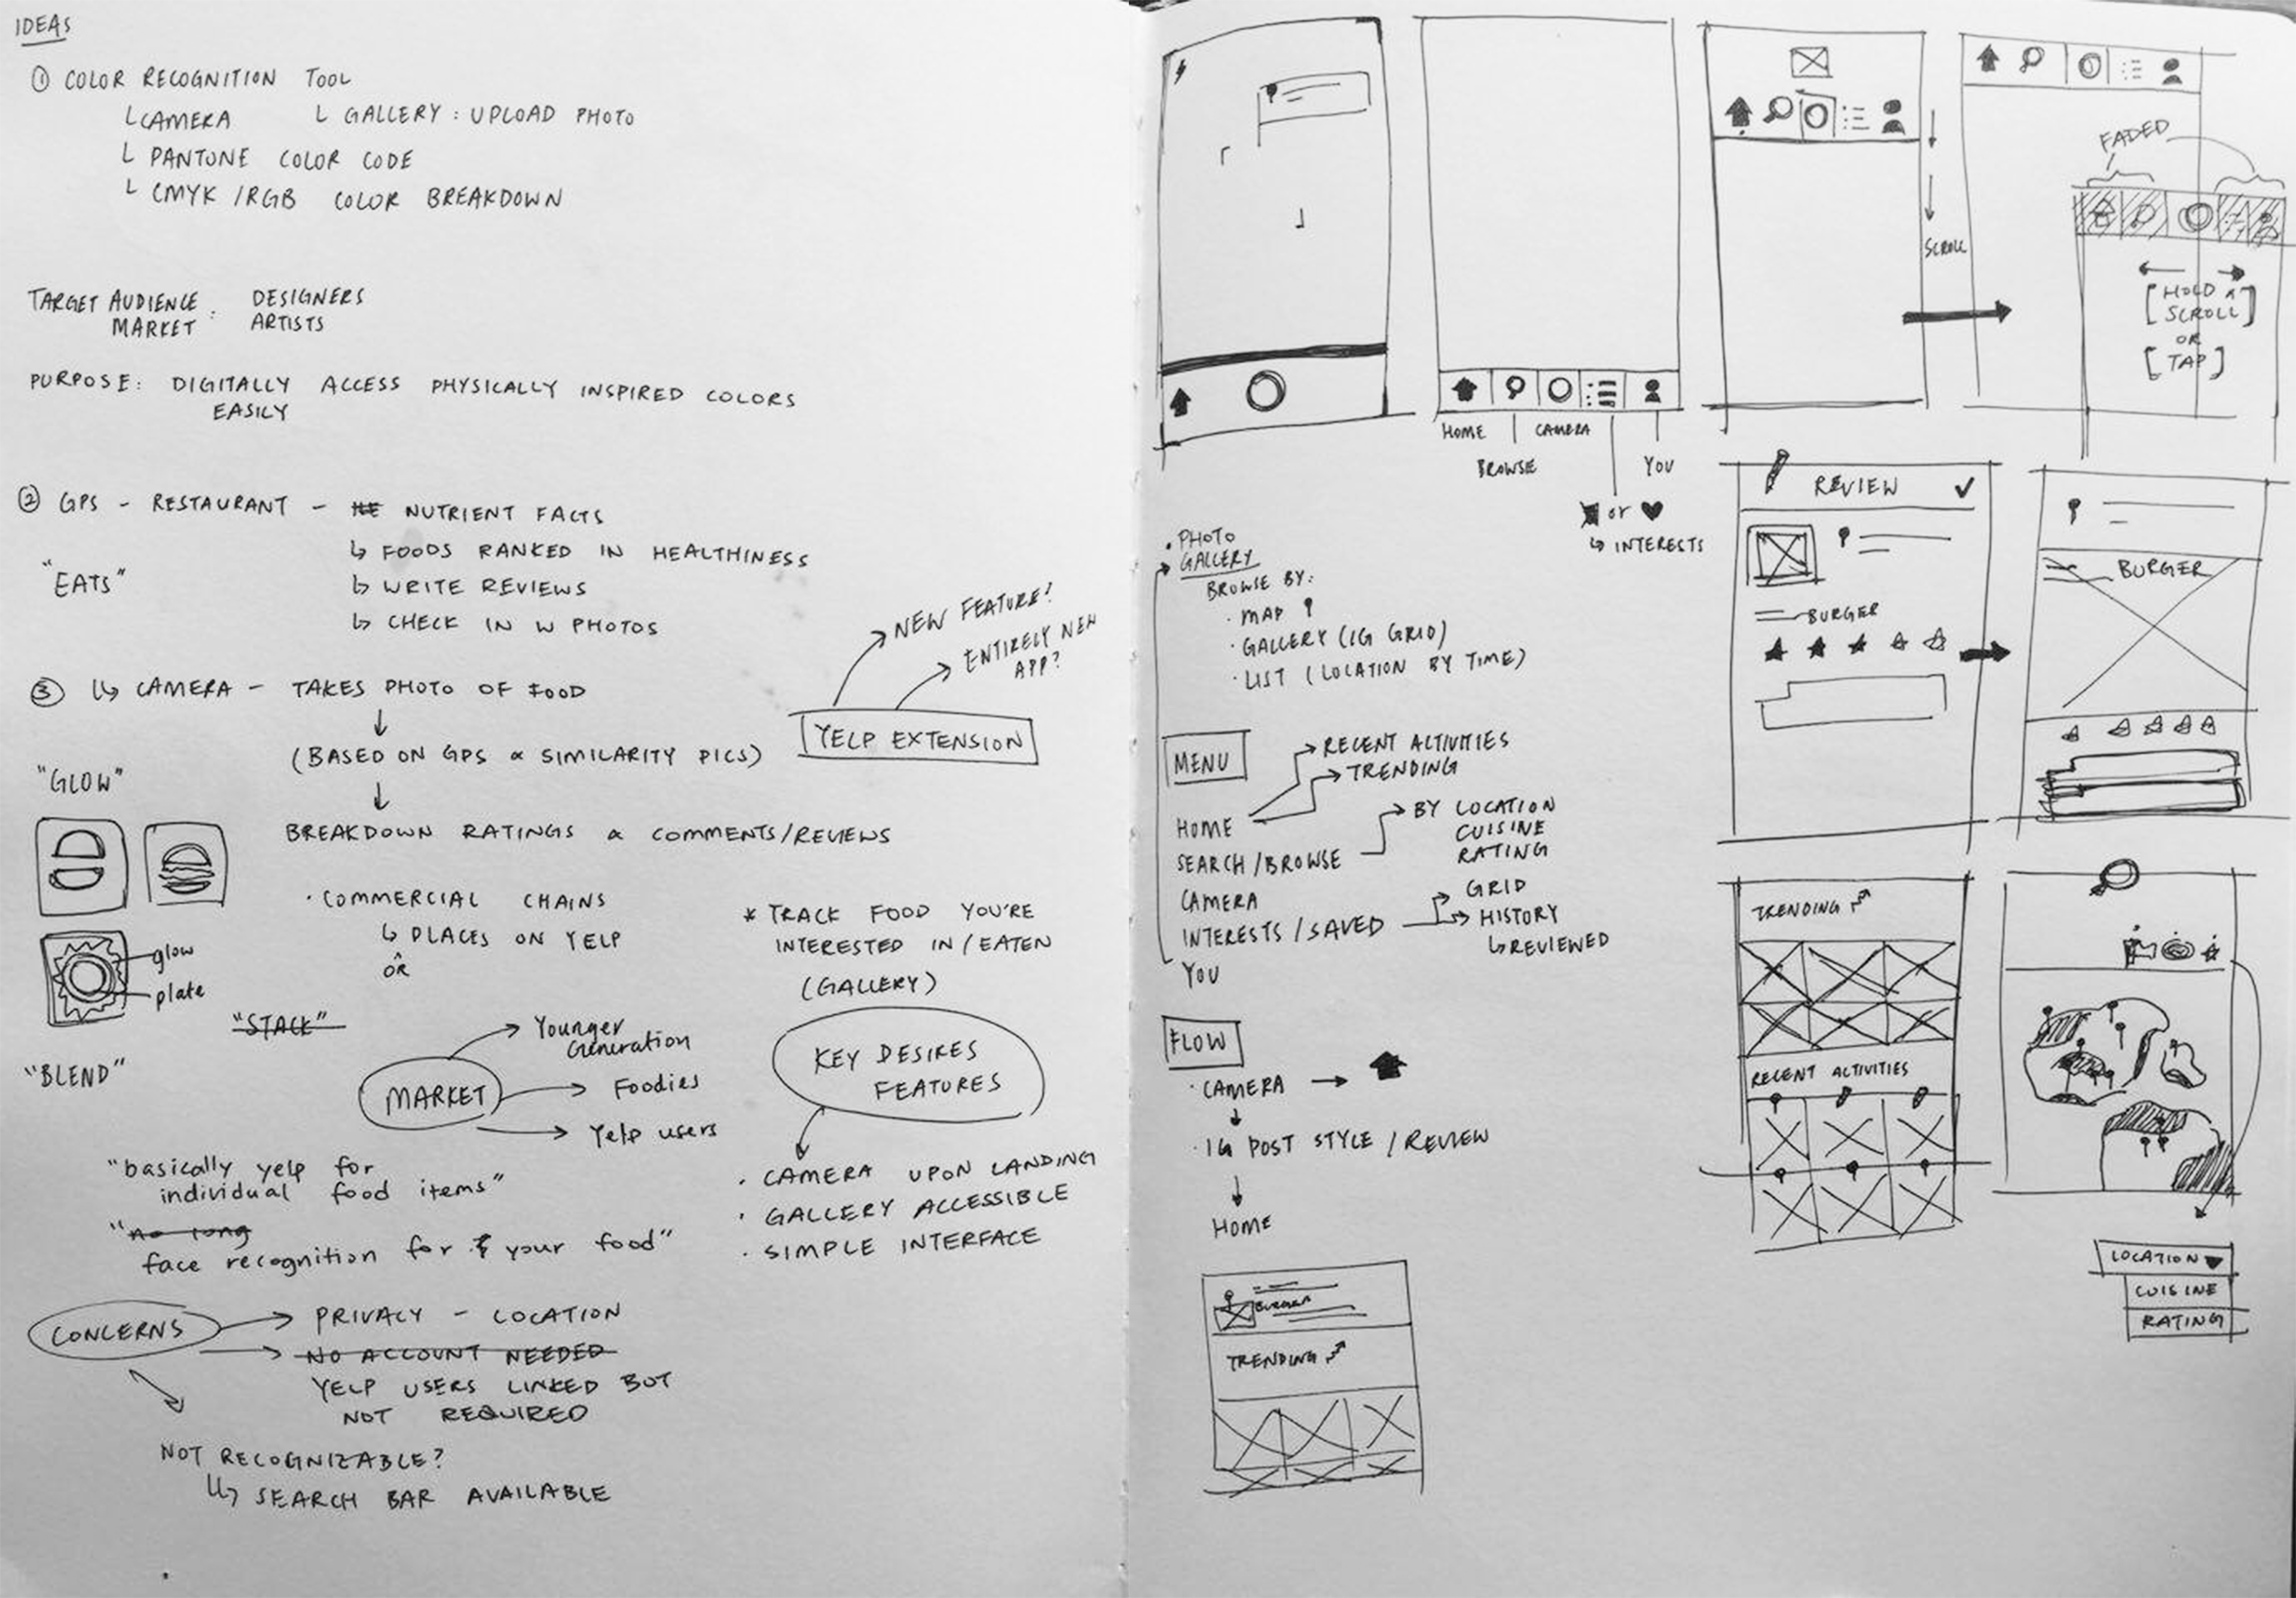 IDEAS
① COLOR RECOGNITION TOOL
CAMERA
GALLERY : UPLOAD PHOTO
PANTONE COLOR CODE
CMYK /RGB COLOR BREAKDOWN
TARGET AUDIENCE :
MARKET
DESIGNERS
ARTISTS
PURPOSE: DIGITALLY ACCESS PHYSICALLY INSPIRED COLORS
EASILY
② GPS - RESTAURANT - NUTRIENT FACTS
↳ FOODS RANKED IN HEALTHINESS
"EATS"
↳ WRITE REVIEWS
↳ CHECK IN W PHOTOS
→ NEW FEATURE?
→ ENTIRELY NEW
APP?
YELP EXTENSION
③ ↳ CAMERA - TAKES PHOTO OF FOOD
↓
(BASED ON GPS & SIMILARITY PICS)
"GLOW"
↓
BREAKDOWN RATINGS & COMMENTS/REVIEWS
glow
plate
· COMMERCIAL CHAINS
↳ PLACES ON YELP
OR
* TRACK FOOD YOU'RE
INTERESTED IN/EATEN
(GALLERY)
"STACK"
"BLEND"
MARKET
Younger
Generation
Foodies
Yelp users
KEY DESIRES
FEATURES
· CAMERA UPON LANDING
· GALLERY ACCESSIBLE
· SIMPLE INTERFACE
"basically yelp for
individual food items"
"no long
face recognition for your food"
CONCERNS
→ PRIVACY - LOCATION
→ NO ACCOUNT NEEDED
YELP USERS LINKED BUT
NOT REQUIRED
NOT RECOGNIZABLE?
↳ SEARCH BAR AVAILABLE
HOME
CAMERA
BROWSE
YOU
or ♥
↳ INTERESTS
SCROLL
FADED
[HOLD &
SCROLL]
OR
[TAP]
· PHOTO
GALLERY
BROWSE BY:
· MAP
· GALLERY (IG GRID)
· LIST (LOCATION BY TIME)
MENU
→ RECENT ACTIVITIES
→ TRENDING
HOME
→ BY LOCATION
CUISINE
RATING
SEARCH/BROWSE
CAMERA
→ GRID
→ HISTORY
↳ REVIEWED
INTERESTS/SAVED
YOU
FLOW
· CAMERA →
↓
· IG POST STYLE / REVIEW
↓
HOME
BURGER
TRENDING
REVIEW ✓
BURGER
BURGER
TRENDING
RECENT ACTIVITIES
LOCATION ▼
CUISINE
RATING